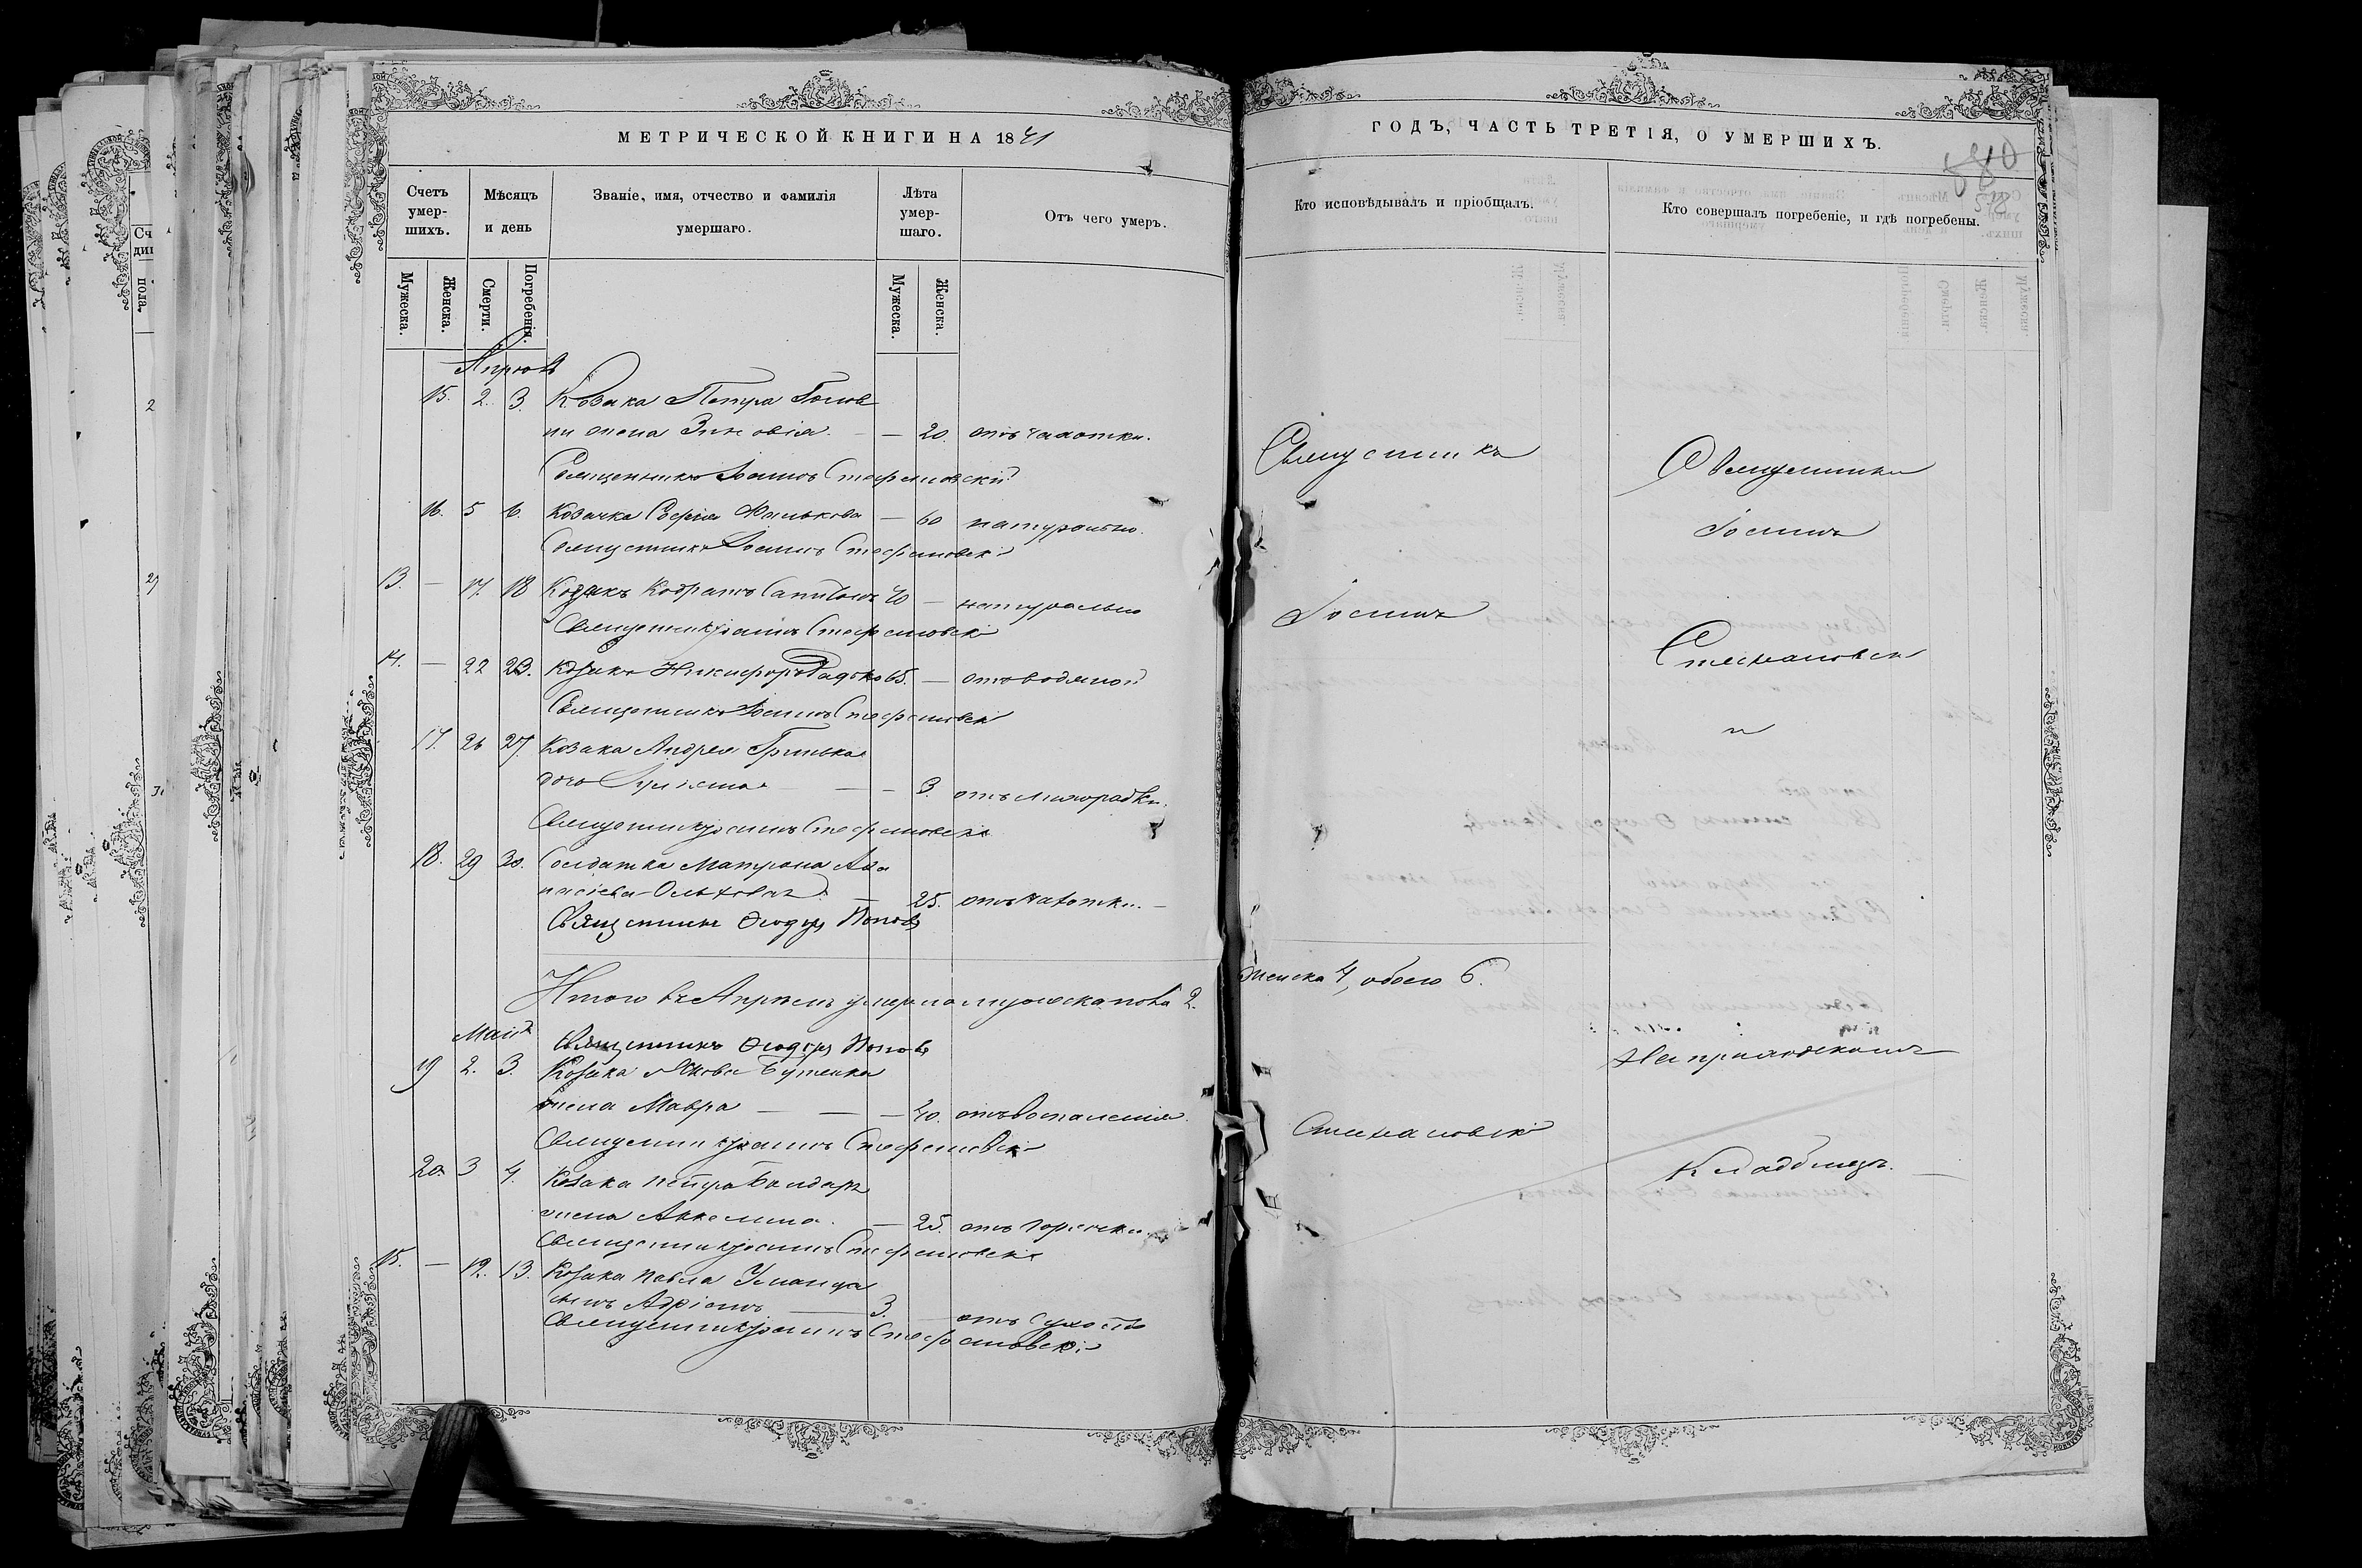 МЕТРИЧЕСКОЙ КНИГИ НА 1841
Счетъ умер-шихъ.
Мѣсяцъ и день
Званіе, имя, отчество и фамилія умершаго.
Лѣта умер-шаго.
Отъ чего умеръ.
Мужеска. Женска. Смерти. Погребенія. Мужеска. Женска.
Апрѣль
15. 2. 3. Козака Петра
жена Зиновія — 20. отъ чахотки.
Священникъ Іоаннъ Стефановскій
16. 5 6. Козачка Софія — 60 натурально.
Священникъ Іоаннъ Стефановскій
13. — 17. 18 Козакъ Кодратъ — натурально
Священникъ Іоаннъ Стефановскій
14. — 22 23. Козакъ Никифоръ 65. — отъ водяной
Священникъ Іоаннъ Стефановскій
17. 26 27. Козака Андрея Гринька
дочь — 3. отъ лихорадки.
Священникъ Іоаннъ Стефановскій
18. 29 30. Солдатка Матрона Ава
25. отъ чахотки. —
Священникъ Ѳеодоръ Поповъ
Итого въ Апрѣлѣ умерло мужеска пола 2.
Маій
Священникъ Ѳеодоръ Поповъ
19 2. 3. Козака Якова Бутенка
жена Мавра — — — 40. отъ воспаленія.
Священникъ Іоаннъ Стефановскій
20. 3 4. Козака Петра Бондаря
жена Акилина — 25. отъ горячки
Священникъ Іоаннъ Стефановскій
15. — 12. 13. Козака Павла Уманца
сынъ Адріанъ — 3. отъ сухотъ
Священникъ Іоаннъ Стефановскій
ГОДЪ, ЧАСТЬ ТРЕТІЯ, О УМЕРШИХЪ.
Кто исповѣдывалъ и пріобщалъ.
Кто совершалъ погребеніе, и гдѣ погребены.
Священникъ
Священникъ
Іоаннъ
Іоаннъ
Стефановскій
и
женска 4, обоего 6.
На приходскомъ
Стефановскій
Кладбищѣ. —